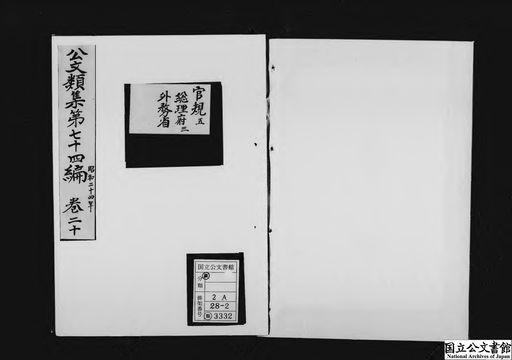 公文類集第七十四編 昭和二十四年 巻二十
官規五
総理府三
外務省
国立公文書館
分類
排架番号
2 A
28-2
3332
国立公文書館
National Archives of Japan